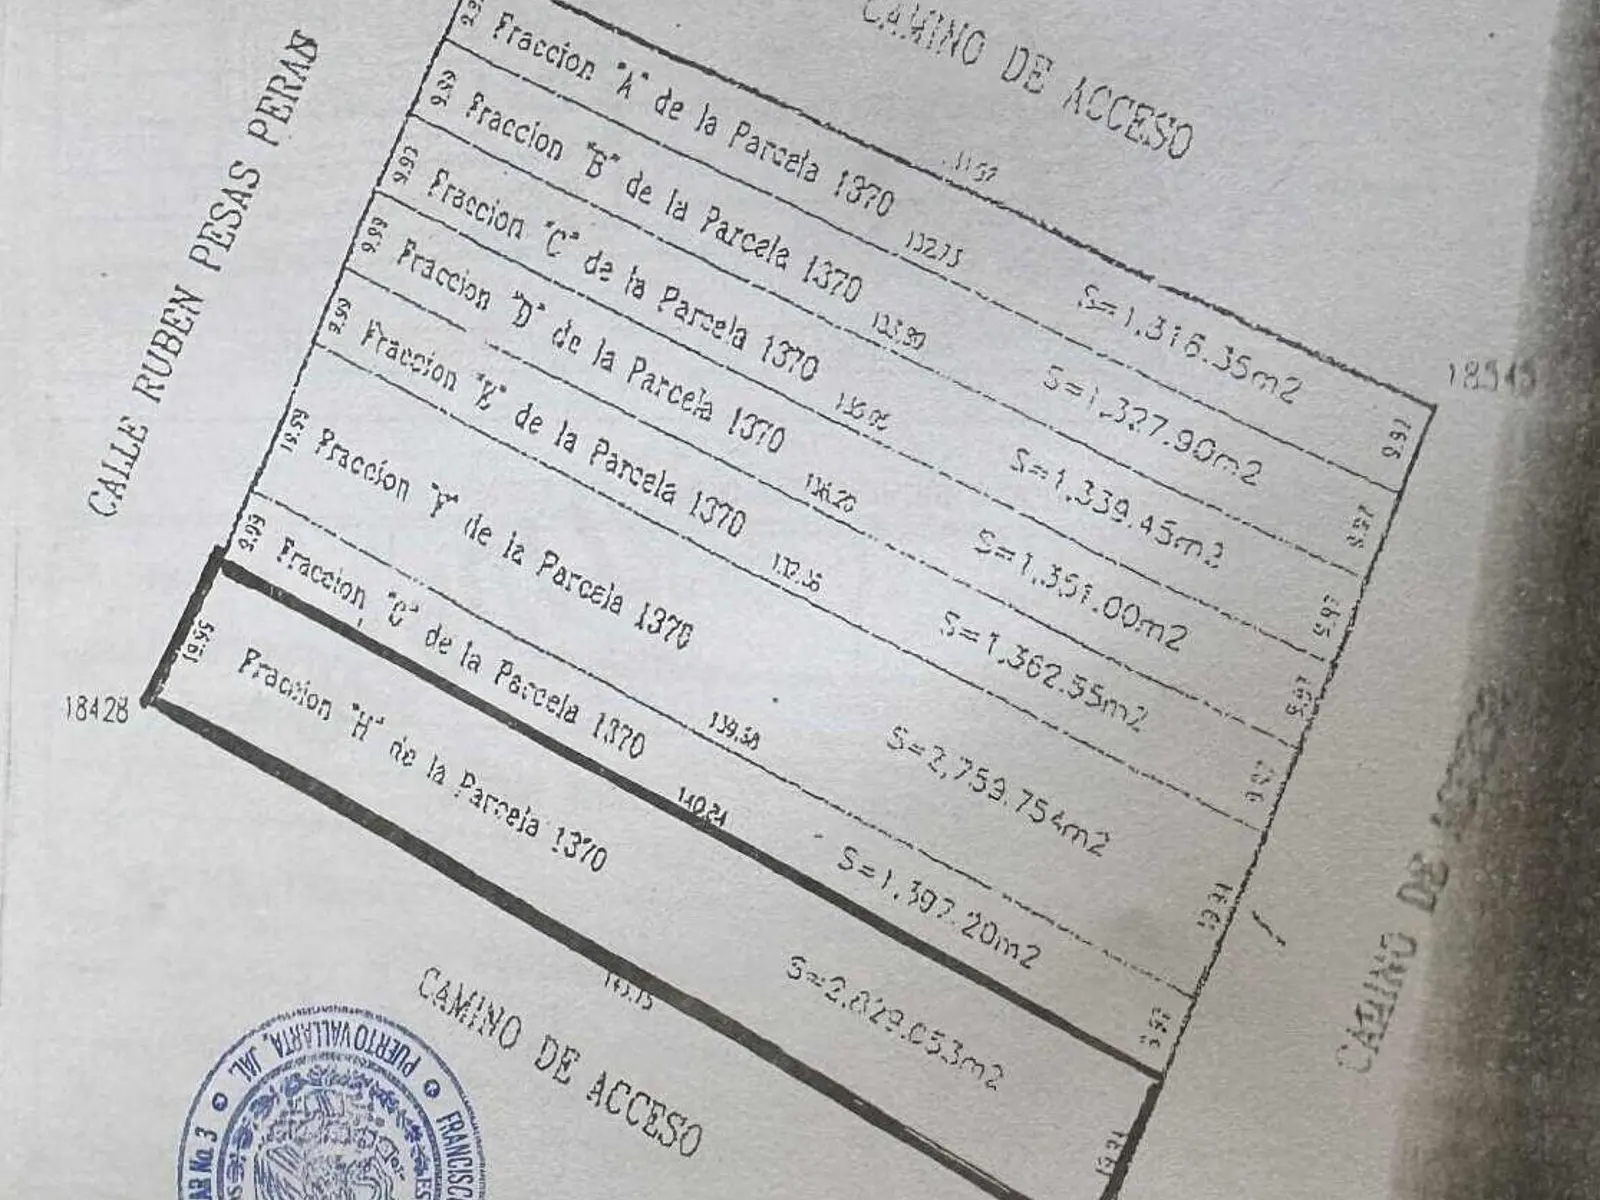 CAMINO DE ACCESO
CALLE RUBEN PESAS PERAN
Fraccion "A" de la Parcela 1370
S=1,316.35m2
9.97
132.75
9.99
Fraccion "B" de la Parcela 1370
S=1,327.90m2
9.97
133.90
9.99
Fraccion "C" de la Parcela 1370
S=1,339.45m2
9.97
9.99
Fraccion "D" de la Parcela 1370
S=1,351.00m2
9.97
136.20
9.99
Fraccion "E" de la Parcela 1370
S=1,362.55m2
9.97
137.36
19.99
Fraccion "F" de la Parcela 1370
S=2,759.754m2
139.58
9.99
Fraccion "G" de la Parcela 1370
S=1,397.20m2
9.97
140.84
19.99
Fraccion "H" de la Parcela 1370
S=2,829.053m2
143.15
18428
CAMINO DE ACCESO
CAMINO DE
PUERTO VALLARTA, JAL.
No. 3